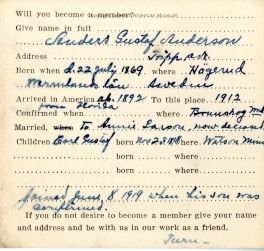 Will you become a member?
Give name in full
Anders Gustaf Anderson
Address Tripp
Born when d. 22 July 1869 where Högerud
Wermlands län Sweden
Arrived in America ab. 1892 To this place 1912
from Florida
Confirmed when where Brunskog
Married, when To Annie Larson, now deceased
Children Carl Gustaf born Nov 23 where Watson Minn
born where
born where
Joined June 8 1919 when his son was
confirmed.
If you do not desire to become a member give your name
and address and be with us in our work as a friend.
Turn